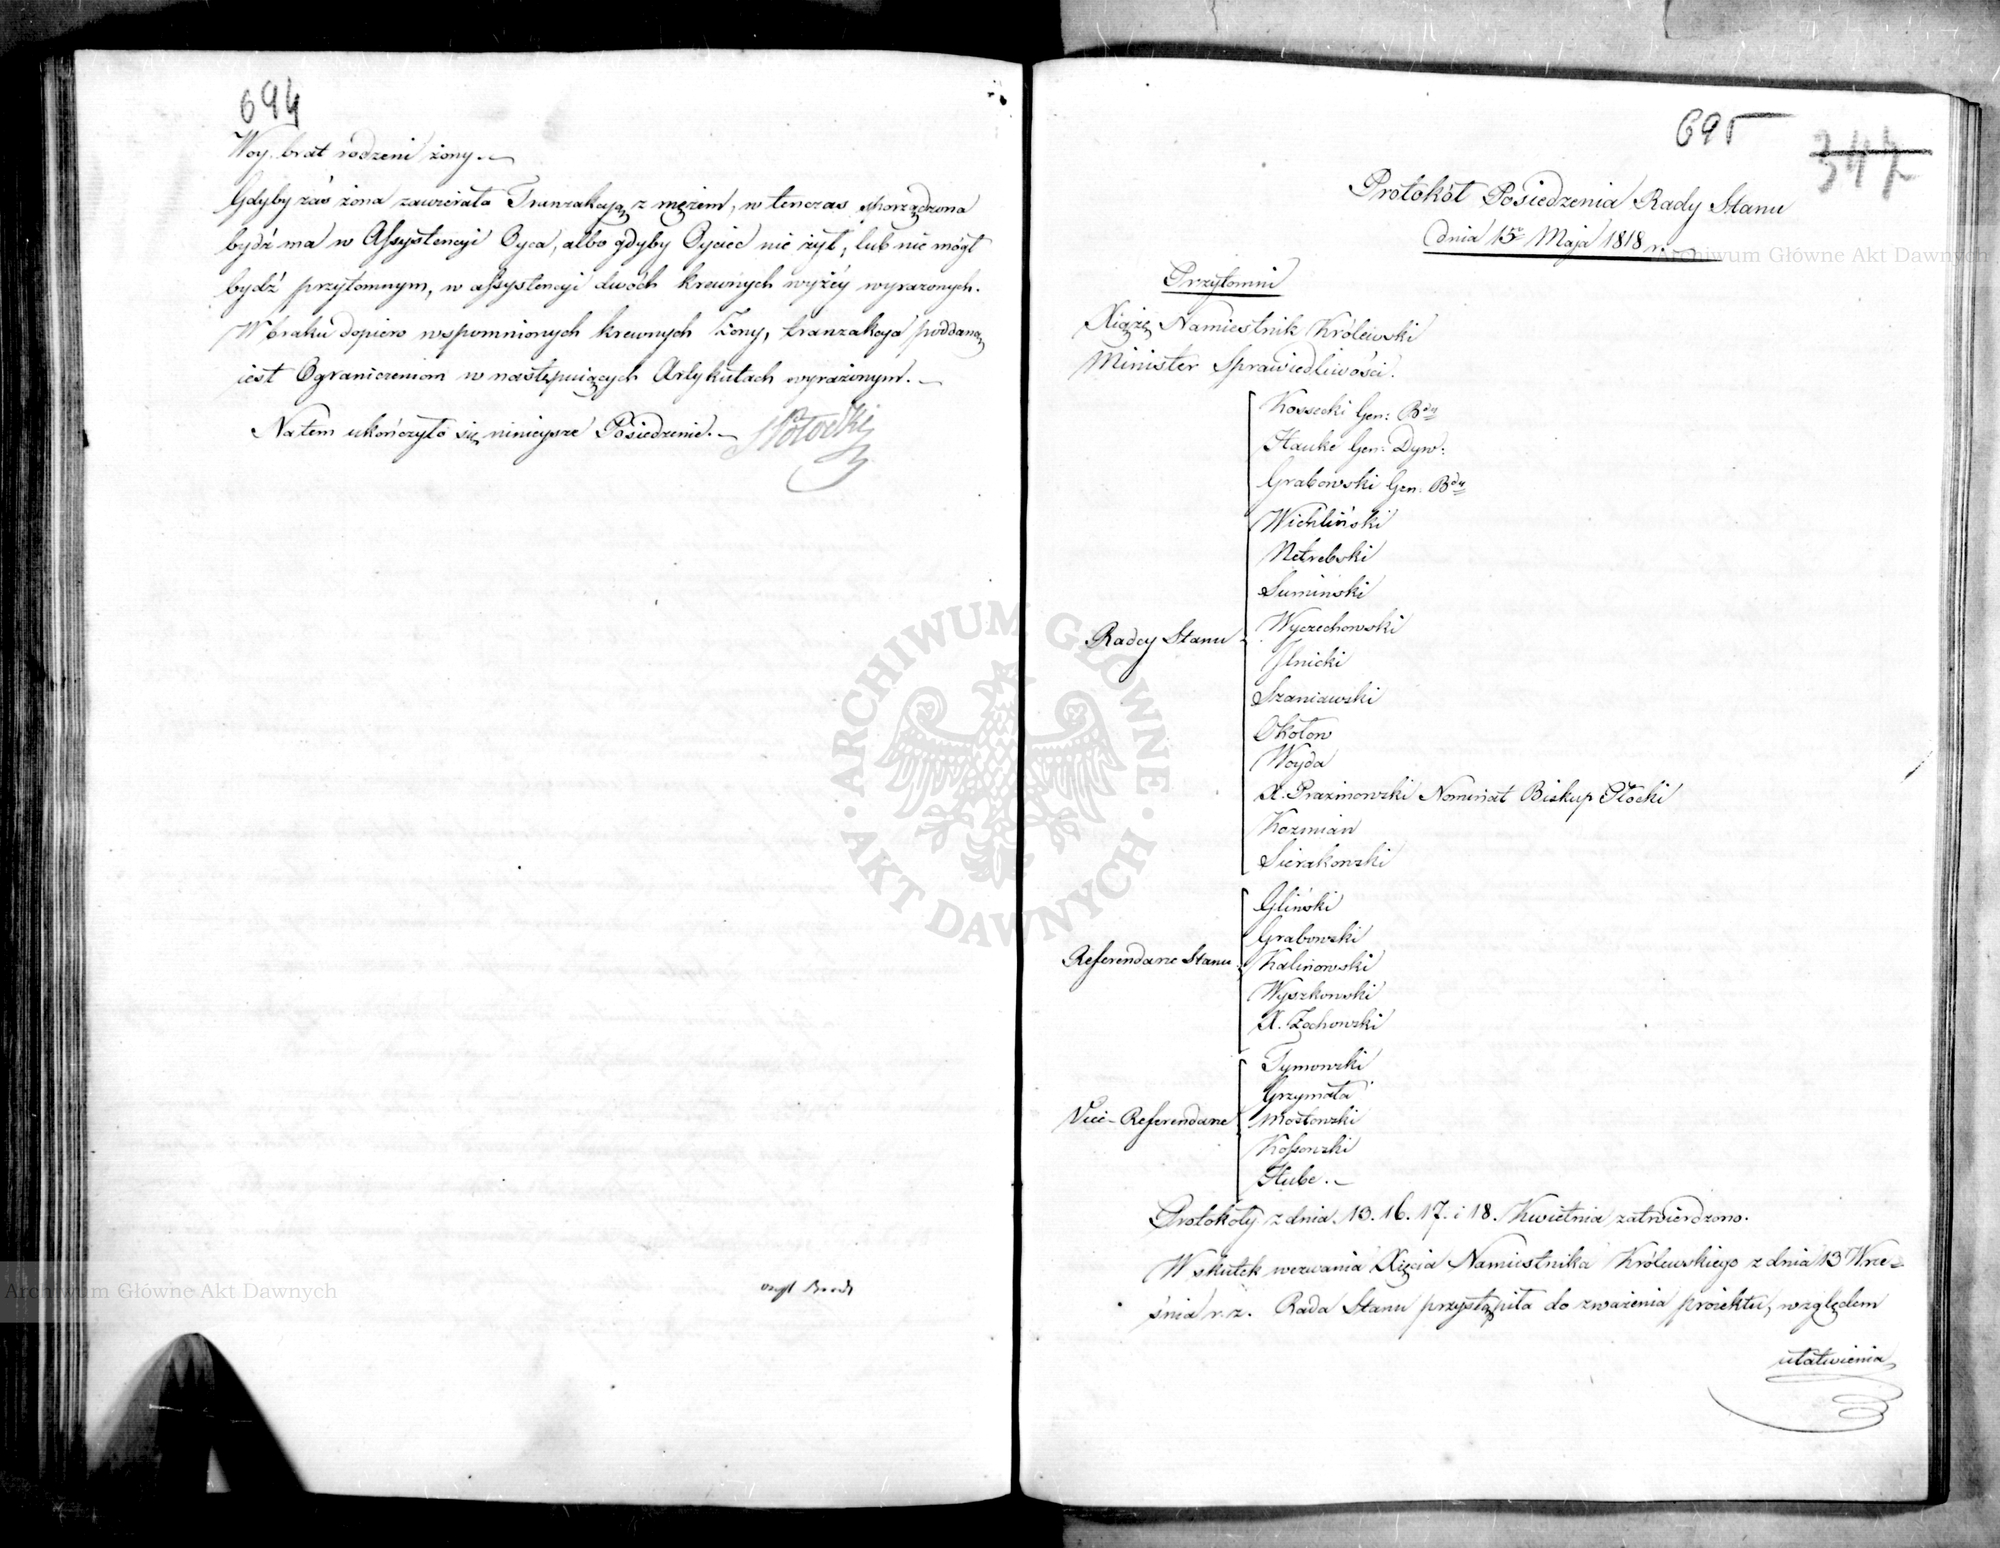 694
Woy. brat rodzeni żony.—
Gdyby zaś żona zawierała Tranzakcyą z mężem, w tenczas sporządzona
bydź ma w Assystencyi Oyca, albo gdyby Oyciec nie żył, lub nie mógł
bydź przytomnym, w assystencyi dwóch krewnych wyżéy wyrażonych.
W braku dopiero wspomnionych krewnych Żony, tranzakcya poddana
iest Ograniczeniom w następuiących Artykułach wyrażonym.—
Na tem ukończyło się ninieysze Posiedzenie.—
695
347
Protokół Posiedzenia Rady Stanu
dnia 15o Maja 1818 r.
Przytomni
Xiążę Namiestnik Królewski
Minister Sprawiedliwości.
Radcy Stanu
Kossecki Gen: Bdy
Hauke Gen: Dyw:
Grabowski Gen: Bdy
Wichliński
Netrebski
Sumiński
Wyczechowski
Ilnicki
Szaniawski
Okołow
Woyda
X. Prażmowski Nominat Biskup Płocki
Kozmian
Sierakowski
Referendarze Stanu
Gliński
Grabowski
Kalinowski
Wyszkowski
X. Żochowski
Vice-Referendarze
Tymowski
Grzymała
Mostowski
Kossowski
Hube.—
Protokoły z dnia 13. 16. 17. i 18. Kwietnia zatwierdzono.
W skutek wezwania Xięcia Namiestnika Królewskiego z dnia 13 Wrze-
śnia r. z. Rada Stanu przystąpiła do zważenia proiektu, względem
ułatwienia
Archiwum Główne Akt Dawnych
Archiwum Główne Akt Dawnych
ARCHIWUM GŁÓWNE
AKT DAWNYCH